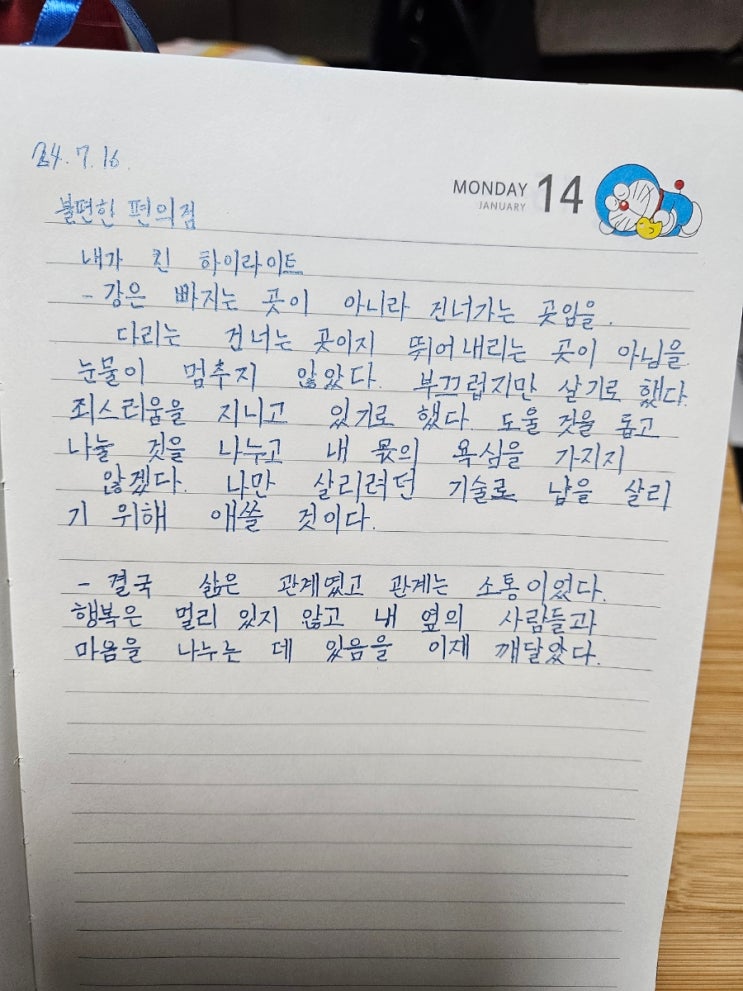 24.7.16.
MONDAY 14
JANUARY
불편한 편의점
내가 친 하이라이트
- 강은 빠지는 곳이 아니라 건너가는 곳임을.
다리는 건너는 곳이지 뛰어내리는 곳이 아님을
눈물이 멈추지 않았다. 부끄럽지만 살기로 했다.
죄스러움을 지니고 있기로 했다. 도울 것을 돕고
나눌 것을 나누고 내 몫의 욕심을 가지지
않겠다. 나만 살리려던 기술로 남을 살리
기 위해 애쓸 것이다.
- 결국 삶은 관계였고 관계는 소통이었다.
행복은 멀리 있지 않고 내 옆의 사람들과
마음을 나누는 데 있음을 이제 깨달았다.